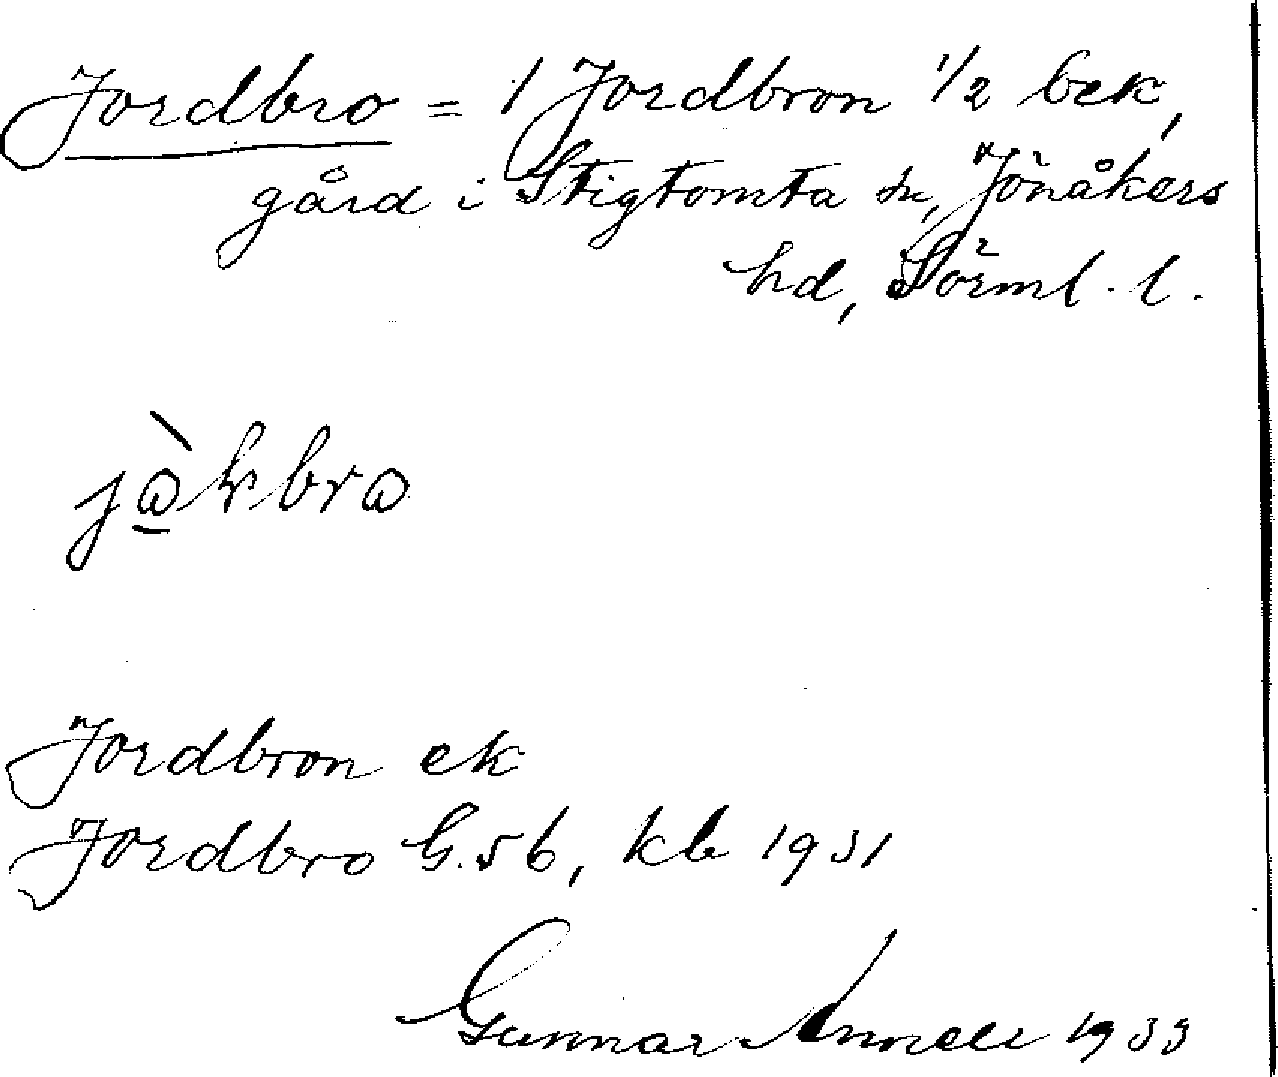 Jordbro = 1 Jordbron 1/2 bek,
gård i Stigtomta sn, Jönåkers
hd, Sörml. l.
Jordbron ek
Jordbro G.5b, kb 1931
Gunnar Annell 1933